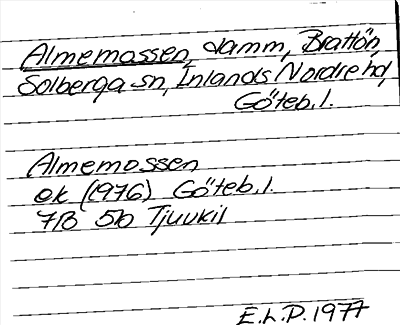 Almemossen, damm, Brattön,
Solberga sn, Inlands Nordre hd,
Göteb. l.
Almemossen
ek (1976) Göteb. l.
7B 5b Tjuvkil
E.L.P. 1977